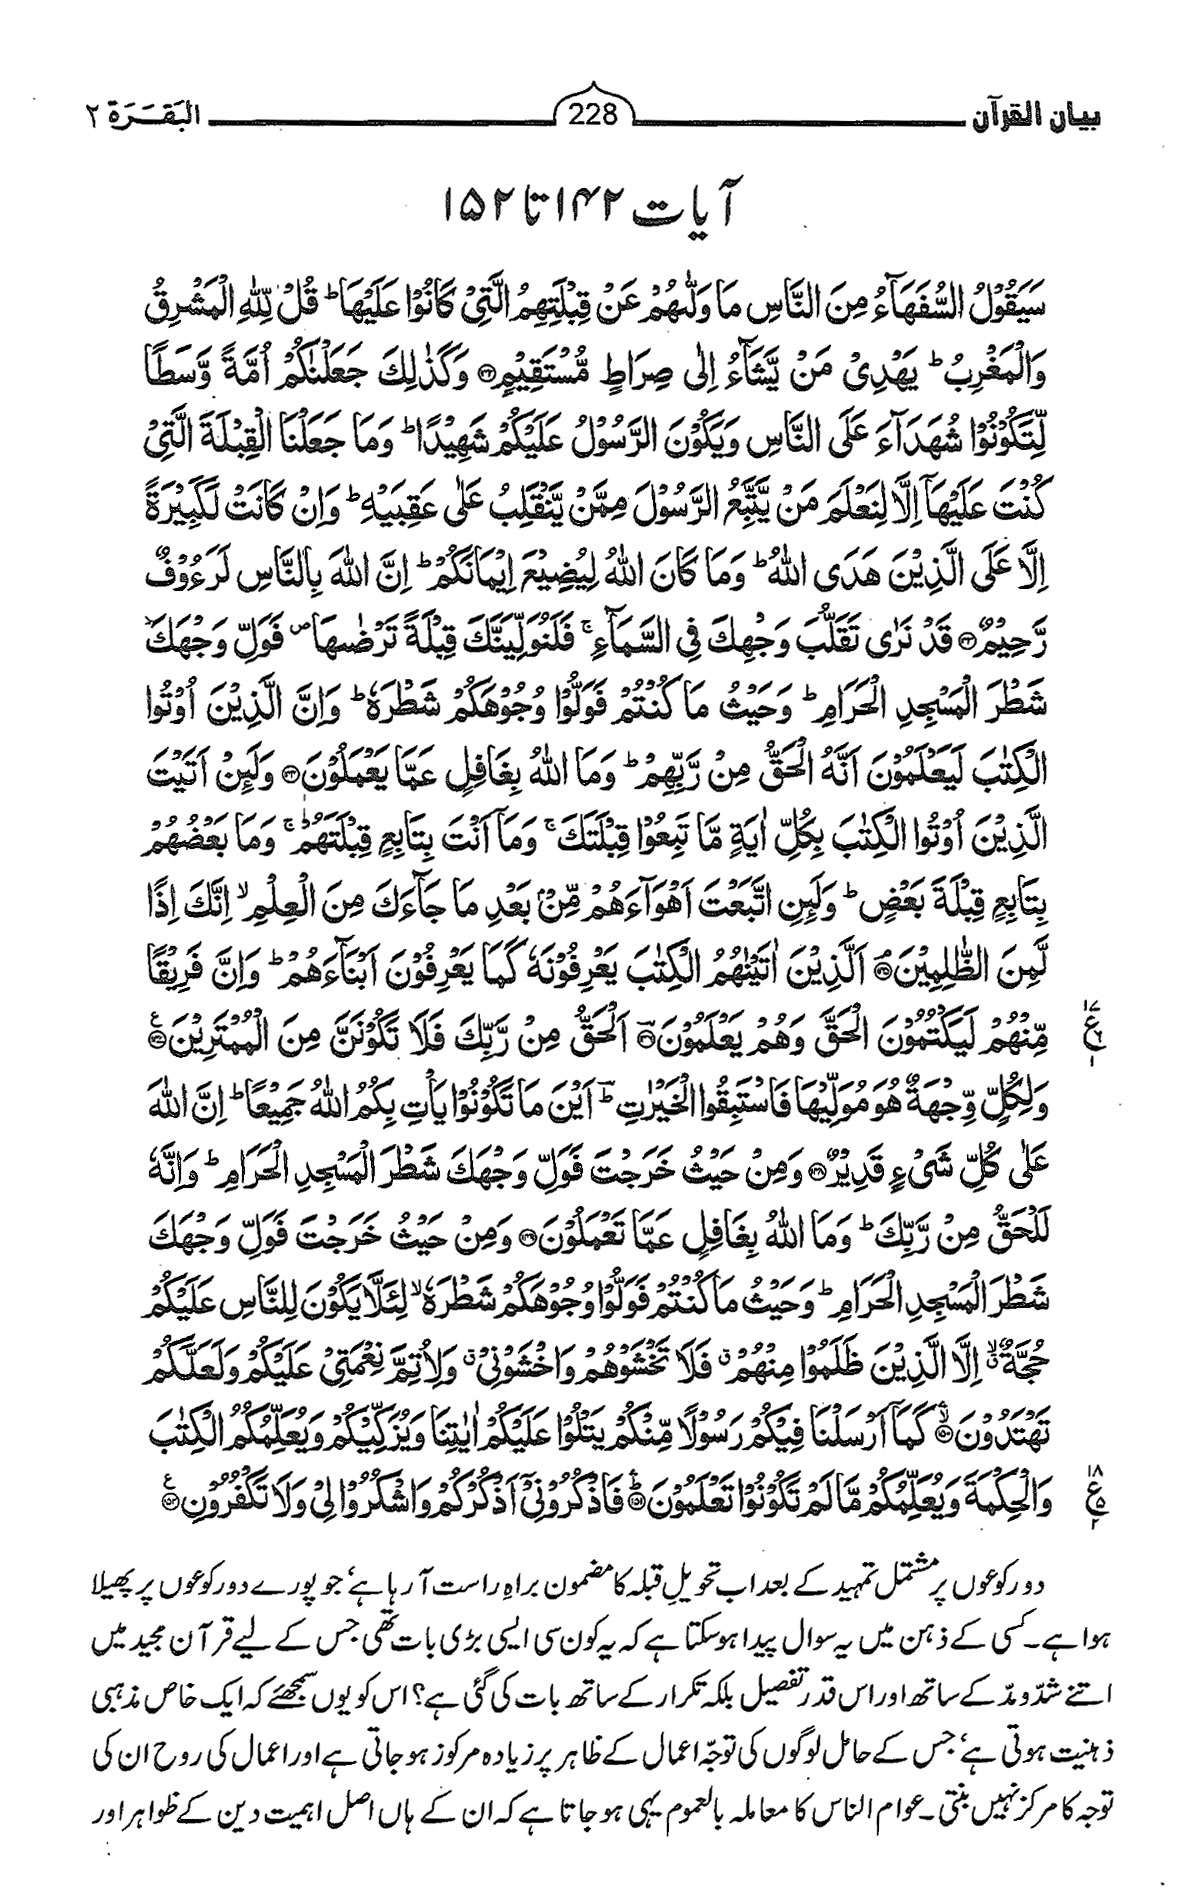 بیان القرآن 228 البَقَرَة ۲
آیات ۱۴۲ تا ۱۵۲
سَيَقُوْلُ السُّفَهَآءُ مِنَ النَّاسِ مَا وَلّٰىهُمْ عَنْ قِبْلَتِهِمُ الَّتِيْ كَانُوْا عَلَيْهَا ؕ قُلْ لِّلّٰهِ الْمَشْرِقُ
وَالْمَغْرِبُ ؕ يَهْدِيْ مَنْ يَّشَآءُ اِلٰى صِرَاطٍ مُّسْتَقِيْمٍ ﴿۱۴۲﴾ وَكَذٰلِكَ جَعَلْنٰكُمْ اُمَّةً وَّسَطًا
لِّتَكُوْنُوْا شُهَدَآءَ عَلَى النَّاسِ وَيَكُوْنَ الرَّسُوْلُ عَلَيْكُمْ شَهِيْدًا ؕ وَمَا جَعَلْنَا الْقِبْلَةَ الَّتِيْ
كُنْتَ عَلَيْهَآ اِلَّا لِنَعْلَمَ مَنْ يَّتَّبِعُ الرَّسُوْلَ مِمَّنْ يَّنْقَلِبُ عَلٰى عَقِبَيْهِ ؕ وَاِنْ كَانَتْ لَكَبِيْرَةً
اِلَّا عَلَى الَّذِيْنَ هَدَى اللّٰهُ ؕ وَمَا كَانَ اللّٰهُ لِيُضِيْعَ اِيْمَانَكُمْ ؕ اِنَّ اللّٰهَ بِالنَّاسِ لَرَءُوْفٌ
رَّحِيْمٌ ﴿۱۴۳﴾ قَدْ نَرٰى تَقَلُّبَ وَجْهِكَ فِي السَّمَآءِ ۚ فَلَنُوَلِّيَنَّكَ قِبْلَةً تَرْضٰىهَا ۪ فَوَلِّ وَجْهَكَ
شَطْرَ الْمَسْجِدِ الْحَرَامِ ؕ وَحَيْثُ مَا كُنْتُمْ فَوَلُّوْا وُجُوْهَكُمْ شَطْرَهٗ ؕ وَاِنَّ الَّذِيْنَ اُوْتُوا
الْكِتٰبَ لَيَعْلَمُوْنَ اَنَّهُ الْحَقُّ مِنْ رَّبِّهِمْ ؕ وَمَا اللّٰهُ بِغَافِلٍ عَمَّا يَعْمَلُوْنَ ﴿۱۴۴﴾ وَلَىِٕنْ اَتَيْتَ
الَّذِيْنَ اُوْتُوا الْكِتٰبَ بِكُلِّ اٰيَةٍ مَّا تَبِعُوْا قِبْلَتَكَ ۚ وَمَآ اَنْتَ بِتَابِعٍ قِبْلَتَهُمْ ۚ وَمَا بَعْضُهُمْ
بِتَابِعٍ قِبْلَةَ بَعْضٍ ؕ وَلَىِٕنِ اتَّبَعْتَ اَهْوَآءَهُمْ مِّنْۢ بَعْدِ مَا جَآءَكَ مِنَ الْعِلْمِ ۙ اِنَّكَ اِذًا
لَّمِنَ الظّٰلِمِيْنَ ﴿۱۴۵﴾ اَلَّذِيْنَ اٰتَيْنٰهُمُ الْكِتٰبَ يَعْرِفُوْنَهٗ كَمَا يَعْرِفُوْنَ اَبْنَآءَهُمْ ؕ وَاِنَّ فَرِيْقًا
مِّنْهُمْ لَيَكْتُمُوْنَ الْحَقَّ وَهُمْ يَعْلَمُوْنَ ﴿۱۴۶﴾ اَلْحَقُّ مِنْ رَّبِّكَ فَلَا تَكُوْنَنَّ مِنَ الْمُمْتَرِيْنَ ﴿۱۴۷﴾ ۱۷ ع ۱
وَلِكُلٍّ وِّجْهَةٌ هُوَ مُوَلِّيْهَا فَاسْتَبِقُوا الْخَيْرٰتِ ؕ اَيْنَ مَا تَكُوْنُوْا يَاْتِ بِكُمُ اللّٰهُ جَمِيْعًا ؕ اِنَّ اللّٰهَ
عَلٰى كُلِّ شَيْءٍ قَدِيْرٌ ﴿۱۴۸﴾ وَمِنْ حَيْثُ خَرَجْتَ فَوَلِّ وَجْهَكَ شَطْرَ الْمَسْجِدِ الْحَرَامِ ؕ وَاِنَّهٗ
لَلْحَقُّ مِنْ رَّبِّكَ ؕ وَمَا اللّٰهُ بِغَافِلٍ عَمَّا تَعْمَلُوْنَ ﴿۱۴۹﴾ وَمِنْ حَيْثُ خَرَجْتَ فَوَلِّ وَجْهَكَ
شَطْرَ الْمَسْجِدِ الْحَرَامِ ؕ وَحَيْثُ مَا كُنْتُمْ فَوَلُّوْا وُجُوْهَكُمْ شَطْرَهٗ ۙ لِئَلَّا يَكُوْنَ لِلنَّاسِ عَلَيْكُمْ
حُجَّةٌ ۙ اِلَّا الَّذِيْنَ ظَلَمُوْا مِنْهُمْ ۗ فَلَا تَخْشَوْهُمْ وَاخْشَوْنِيْ ۗ وَلِاُتِمَّ نِعْمَتِيْ عَلَيْكُمْ وَلَعَلَّكُمْ
تَهْتَدُوْنَ ﴿۱۵۰﴾ كَمَآ اَرْسَلْنَا فِيْكُمْ رَسُوْلًا مِّنْكُمْ يَتْلُوْا عَلَيْكُمْ اٰيٰتِنَا وَيُزَكِّيْكُمْ وَيُعَلِّمُكُمُ الْكِتٰبَ
وَالْحِكْمَةَ وَيُعَلِّمُكُمْ مَّا لَمْ تَكُوْنُوْا تَعْلَمُوْنَ ﴿۱۵۱﴾ فَاذْكُرُوْنِيْٓ اَذْكُرْكُمْ وَاشْكُرُوْا لِيْ وَلَا تَكْفُرُوْنِ ﴿۱۵۲﴾ ۱۸ ع ۵ ۲
دو رکوعوں پر مشتمل تمہید کے بعد اب تحویلِ قبلہ کا مضمون براہِ راست آ رہا ہے، جو پورے دو رکوعوں پر پھیلا
ہوا ہے۔ کسی کے ذہن میں یہ سوال پیدا ہو سکتا ہے کہ یہ کون سی ایسی بڑی بات تھی جس کے لیے قرآن مجید میں
اتنے شدّ و مدّ کے ساتھ اور اس قدر تفصیل بلکہ تکرار کے ساتھ بات کی گئی ہے؟ اس کو یوں سمجھئے کہ ایک خاص مذہبی
ذہنیت ہوتی ہے، جس کے حامل لوگوں کی توجّہ اعمال کے ظاہر پر زیادہ مرکوز ہو جاتی ہے اور اعمال کی روح ان کی
توجہ کا مرکز نہیں بنتی۔ عوام الناس کا معاملہ بالعموم یہی ہو جاتا ہے کہ ان کے ہاں اصل اہمیت دین کے ظواہر اور